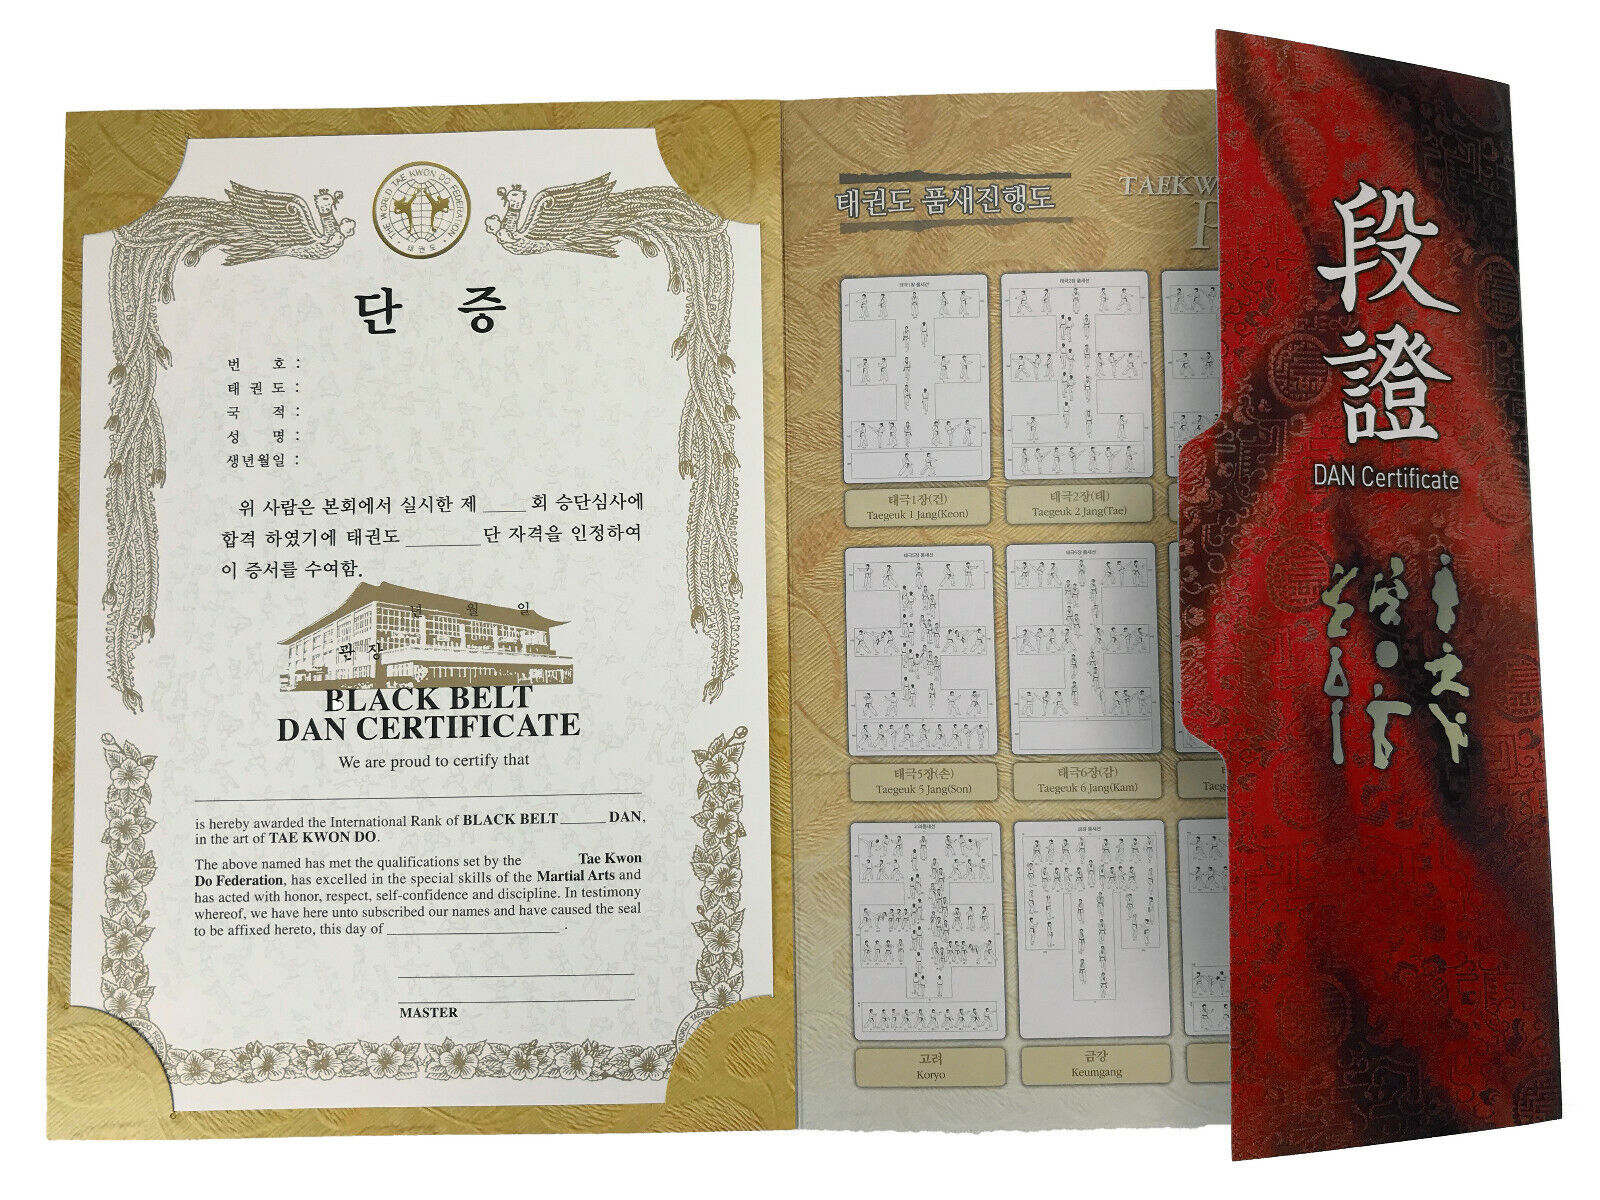 THE WORLD TAE KWON DO FEDERATION
태권도
단 증
번 호 :
태 권 도 :
국 적 :
성 명 :
생년월일 :
위 사람은 본회에서 실시한 제 _____ 회 승단심사에
합격 하였기에 태권도 ________ 단 자격을 인정하여
이 증서를 수여함.
년 월 일
관 장
BLACK BELT
DAN CERTIFICATE
We are proud to certify that
is hereby awarded the International Rank of BLACK BELT ______ DAN,
in the art of TAE KWON DO.
The above named has met the qualifications set by the Tae Kwon
Do Federation, has excelled in the special skills of the Martial Arts and
has acted with honor, respect, self-confidence and discipline. In testimony
whereof, we have here unto subscribed our names and have caused the seal
to be affixed hereto, this day of ______________________ .
MASTER
태권도 품새진행도
TAEKW
P
태극1장 품새선
태극2장 품새선
태극1장(건)
Taegeuk 1 Jang(Keon)
태극2장(태)
Taegeuk 2 Jang(Tae)
태극5장 품새선
태극6장 품새선
태극5장(손)
Taegeuk 5 Jang(Son)
태극6장(감)
Taegeuk 6 Jang(Kam)
Taeg
고려품새선
금강 품새선
고려
Koryo
금강
Keumgang
段
證
DAN Certificate